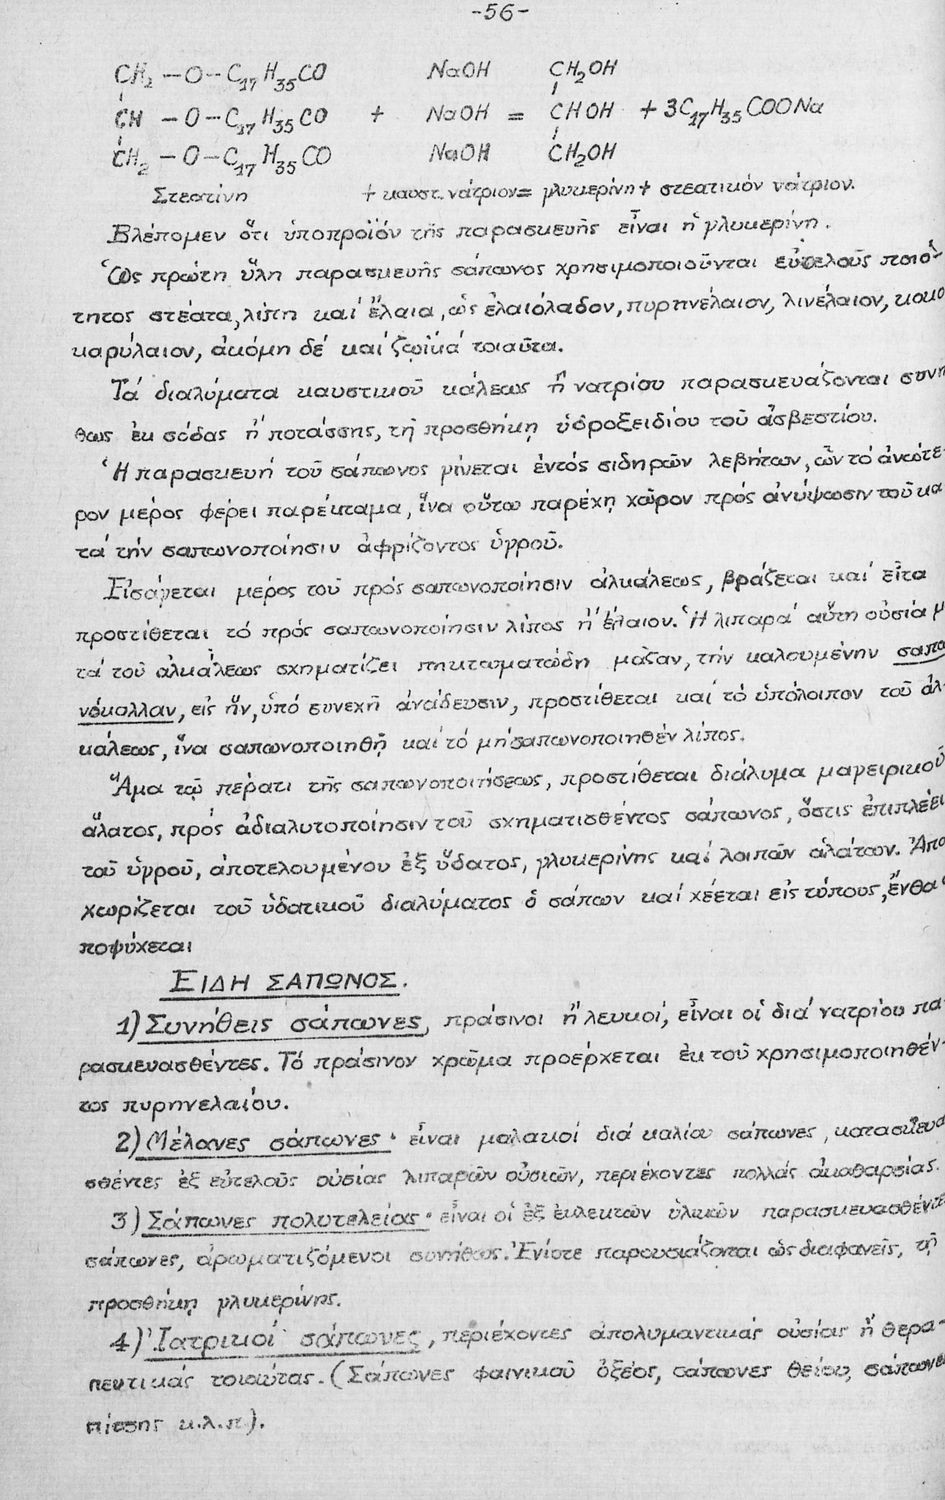 -56-
CH₂ -O-C₁₇H₃₅CO NaOH CH₂OH
CH -O-C₁₇H₃₅CO + NaOH = CHOH + 3C₁₇H₃₅COONa
CH₂ -O-C₁₇H₃₅CO NaOH CH₂OH
Στεατίνη + καυστ. νάτριον = γλυκερίνη + στεατικόν νάτριον.
Βλέπομεν ὅτι ὑποπροϊόν τῆς παρασκευῆς εἶναι ἡ γλυκερίνη.
Ὡς πρώτη ὕλη παρασκευῆς σάπωνος χρησιμοποιοῦνται εὐτελοῦς ποιό-
τητος στέατα, λίπη καί ἔλαια, ὡς ἐλαιόλαδον, πυρηνέλαιον, λινέλαιον, κοκο
καρύλαιον, ἀκόμη δέ καί ζωϊκά τοιαῦτα.
Τά διαλύματα καυστικοῦ κάλεως ἤ νατρίου παρασκευάζονται συνή
θως ἐκ σόδας ἤ ποτάσσης, τῇ προσθήκῃ ὑδροξειδίου τοῦ ἀσβεστίου.
Ἡ παρασκευή τοῦ σάπωνος γίνεται ἐντός σιδηρῶν λεβήτων, ὧν τό ἀνώτε-
ρον μέρος φέρει παρέκταμα, ἵνα οὕτω παρέχῃ χῶρον πρός ἀνύψωσιν τοῦ κα
τά τήν σαπωνοποίησιν ἀφρίζοντος ὑγροῦ.
Εἰσάγεται μέρος τοῦ πρός σαπωνοποίησιν ἀλκάλεως, βράζεται καί εἶτα
προστίθεται τό πρός σαπωνοποίησιν λίπος ἤ ἔλαιον. Ἡ λιπαρά αὕτη οὐσία μ
τά τοῦ ἀλκάλεως σχηματίζει πηκτωματώδη μᾶζαν, τήν καλουμένην σαπω
νόκολλαν, εἰς ἥν, ὑπό συνεχῆ ἀνάδευσιν, προστίθεται καί τό ὑπόλοιπον τοῦ ἀλ-
κάλεως, ἵνα σαπωνοποιηθῇ καί τό μή σαπωνοποιηθέν λίπος.
Ἅμα τῷ πέρατι τῆς σαπωνοποιήσεως, προστίθεται διάλυμα μαγειρικοῦ
ἅλατος, πρός ἀδιαλυτοποίησιν τοῦ σχηματισθέντος σάπωνος, ὅστις ἐπιπλέει
τοῦ ὑγροῦ, ἀποτελουμένου ἐξ ὕδατος, γλυκερίνης καί λοιπῶν ἁλάτων. Ἀπο
χωρίζεται τοῦ ὑδατικοῦ διαλύματος ὁ σάπων καί χέεται εἰς τύπους, ἔνθα ἀ
ποψύχεται
ΕΙΔΗ ΣΑΠΩΝΟΣ.
1) Συνήθεις σάπωνες, πράσινοι ἤ λευκοί, εἶναι οἱ διά νατρίου πα
ρασκευασθέντες. Τό πράσινον χρῶμα προέρχεται ἐκ τοῦ χρησιμοποιηθέν-
τος πυρηνελαίου.
2) Μέλανες σάπωνες· εἶναι μαλακοί διά καλίου σάπωνες, κατασκευα
σθέντες ἐξ εὐτελοῦς οὐσίας λιπαρῶν οὐσιῶν, περιέχοντες πολλάς ἀκαθαρσίας.
3) Σάπωνες πολυτελείας· εἶναι οἱ ἐξ ἐκλεκτῶν ὑλικῶν παρασκευασθέντες
σάπωνες, ἀρωματιζόμενοι συνήθως. Ἐνίοτε παρουσιάζονται ὡς διαφανεῖς, τῇ
προσθήκῃ γλυκερίνης.
4) Ἰατρικοί σάπωνες, περιέχοντες ἀπολυμαντικάς οὐσίας ἤ θερα-
πευτικάς τοιαύτας. (Σάπωνες φαινικοῦ ὀξέος, σάπωνες θείου, σάπωνες
πίσσης κ.λ.π).